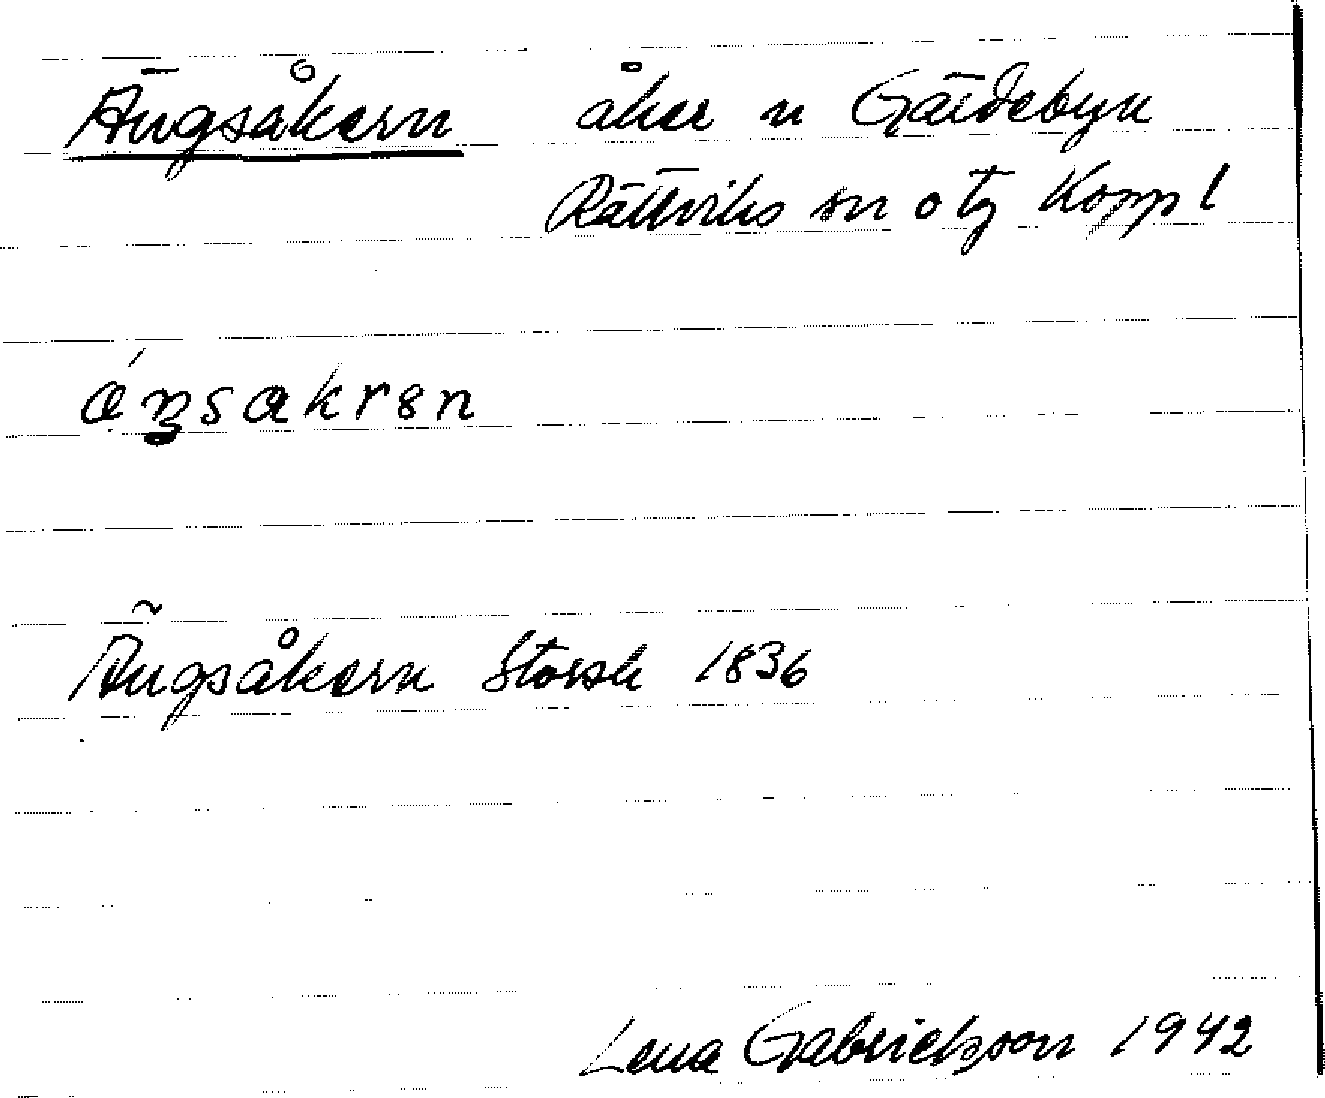 Ängsåkern åker n Gärdebyn
Rättviks sn o tg Kopp l
Ängsåkern Storsk 1836
Lena Gabrielsson 1942